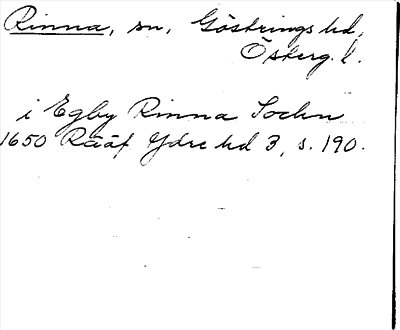 Rinna, sn, Göstrings hd,
Österg. l.
i Egby Rinna Sochn
1650 Rääf Ydre hd 3, s. 190.